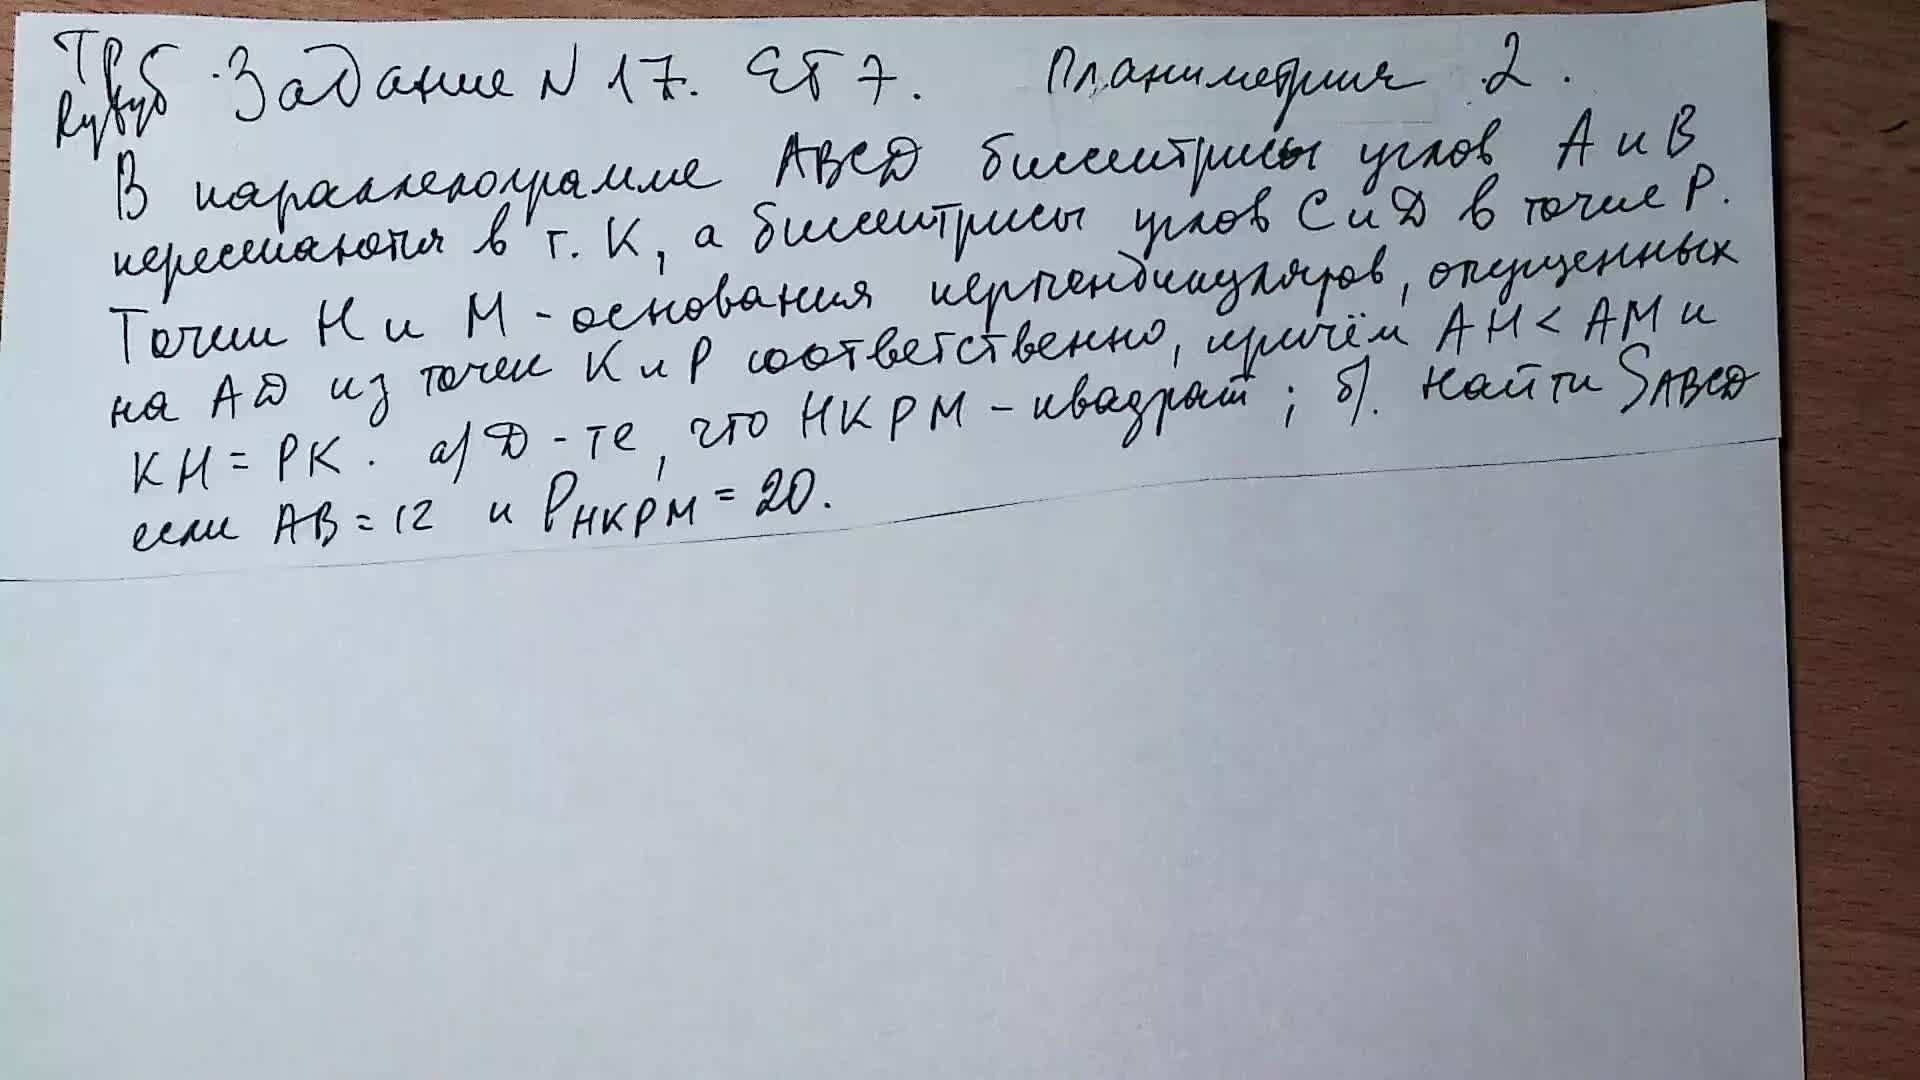 Задание N 17. ЕГЭ 7. Планиметрия 2.
В параллелограмме ABCD биссектрисы углов A и B
пересекаются в т. K, а биссектрисы углов C и D в точке P.
Точки H и M - основания перпендикуляров, опущенных
на AD из точек K и P соответственно, причём AH < AM и
KH = PK. а) D-те, что HKPM - квадрат; б). Найти SABCD
если AB = 12 и PHKPM = 20.